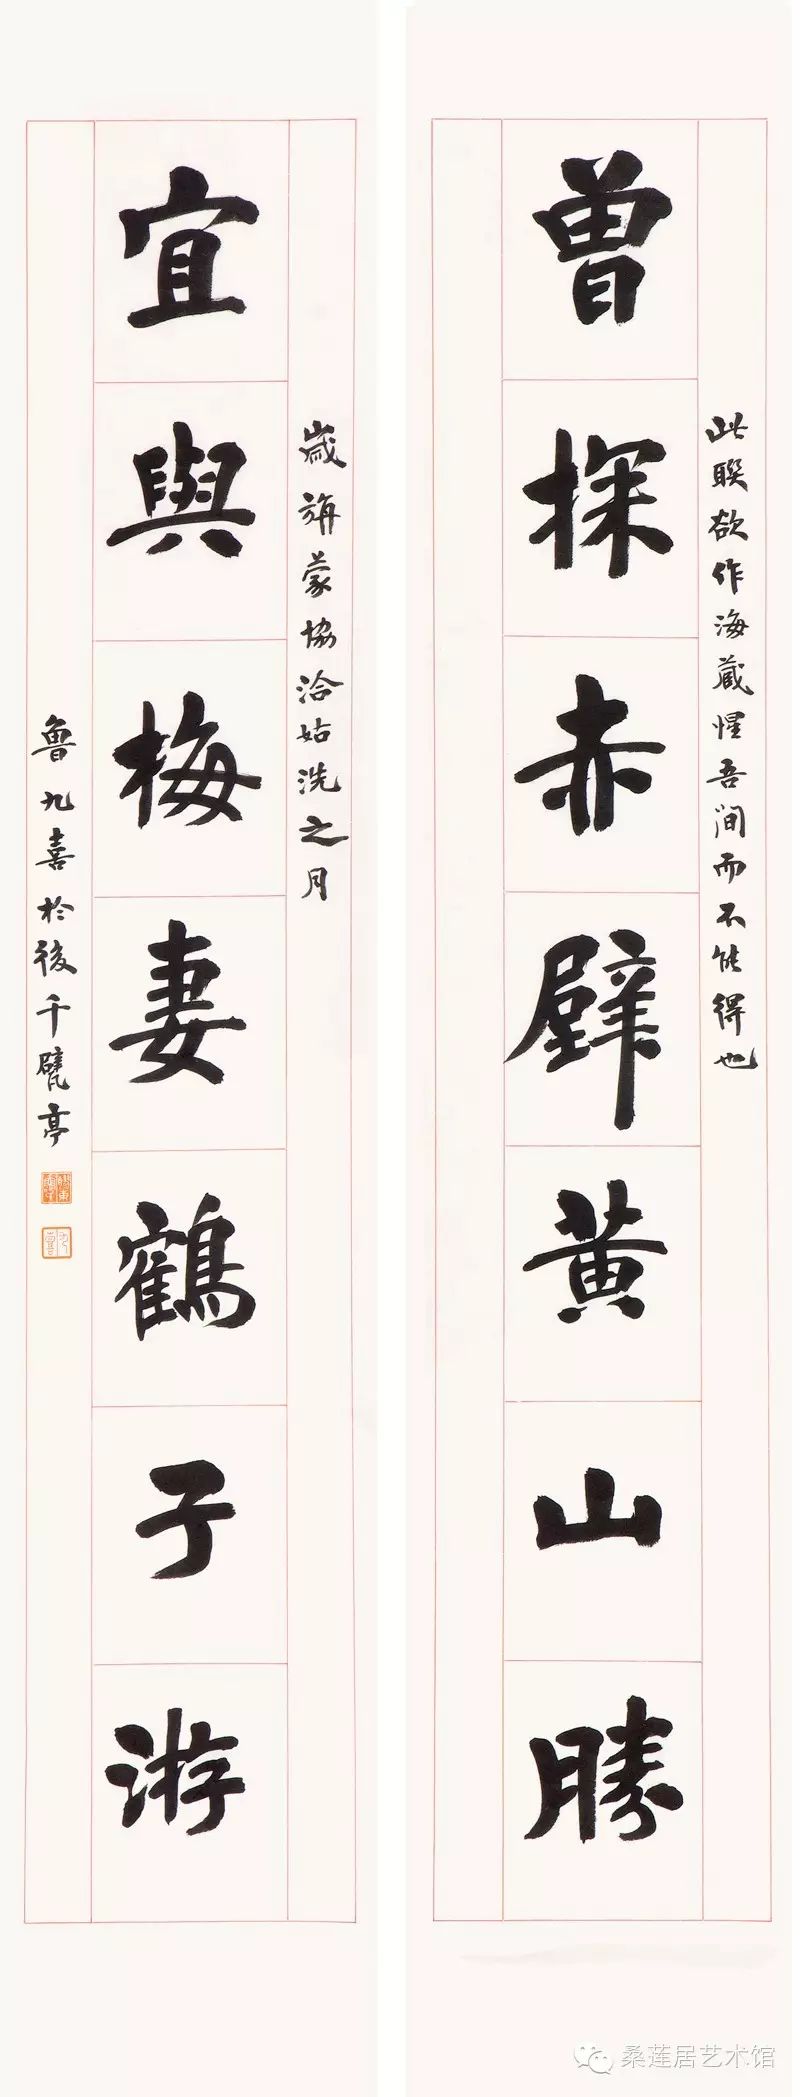 此聯欲作海藏惺吾间而不能得也
曾探赤壁黄山勝
歲旃蒙協洽姑洗之月
宜與梅妻鶴子游
魯九喜於後千甓亭
桑莲居艺术馆